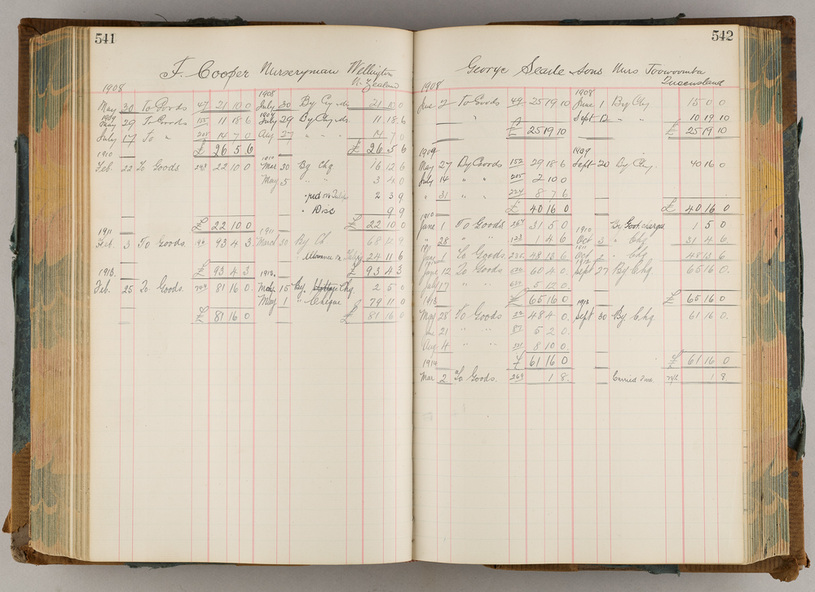 541
F. Cooper Nurseryman Wellington
N. Zealand
1908 1908
May 30 To Goods 47 21 10 0 July 30 By Chq 21 10 0
1909 1909
29 To Goods 11 18 6 July 29 By Chq 11 18 6
July 17 To " 14 7 0 Aug 27 " " 14 7 0
£ 26 5 6 £ 26 5 6
1910 1910
Feb. 22 To Goods 293 22 10 0 Mar 30 By Chq 16 12 6
May 5 " " 3 4 0
2 3 9
" Disc 9 9
£ 22 10 0 £ 22 10 0
1911 1911
Feb. 3 To Goods 93 4 3 March 30 By Ch 68 11 9
24 11 6
£ 93 4 3 £ 93 4 3
1913. 1913.
Feb. 25 To Goods 81 16 0 15 By Chq 2 5 0
May 1 " Cheque 79 11 0
£ 81 16 0 81 16 0
542
George Searle & Sons Nurs Toowoomba
Queensland
1908 1908
June 2 To Goods 49 25 19 10 June 1 By Chq 15 0 0
Sept 12 " " 10 19 10
£ 25 19 10 £ 25 19 10
1909 1909
May 27 By Goods 152 29 18 6 Sept 20 By Chq. 40 16 0
July 14 " " 205 2 10 0
" 31 " " 8 7 6
£ 40 16 0 £ 40 16 0
1910 1910
June 1 To Goods 31 5 0 1 5 0
" 28 " " 1 4 6 Oct 3 " Chq 31 4 6
1911 1911
To Goods 48 13 6 Oct " Chq 48 13 6
12 To Goods 60 4 0 Sept 27 By Chq 65 16 0
17 " " 5 12 0
£ 65 16 0 £ 65 16 0
1913 1913
May 28 To Goods 48 4 0 Sept 30 By Chq 61 16 0
21 " " 5 2 0
Aug 4 " " 8 10 0
£ 61 16 0 £ 61 16 0
1914
Mar 2 To Goods. 263 1 8 Carried 1 8